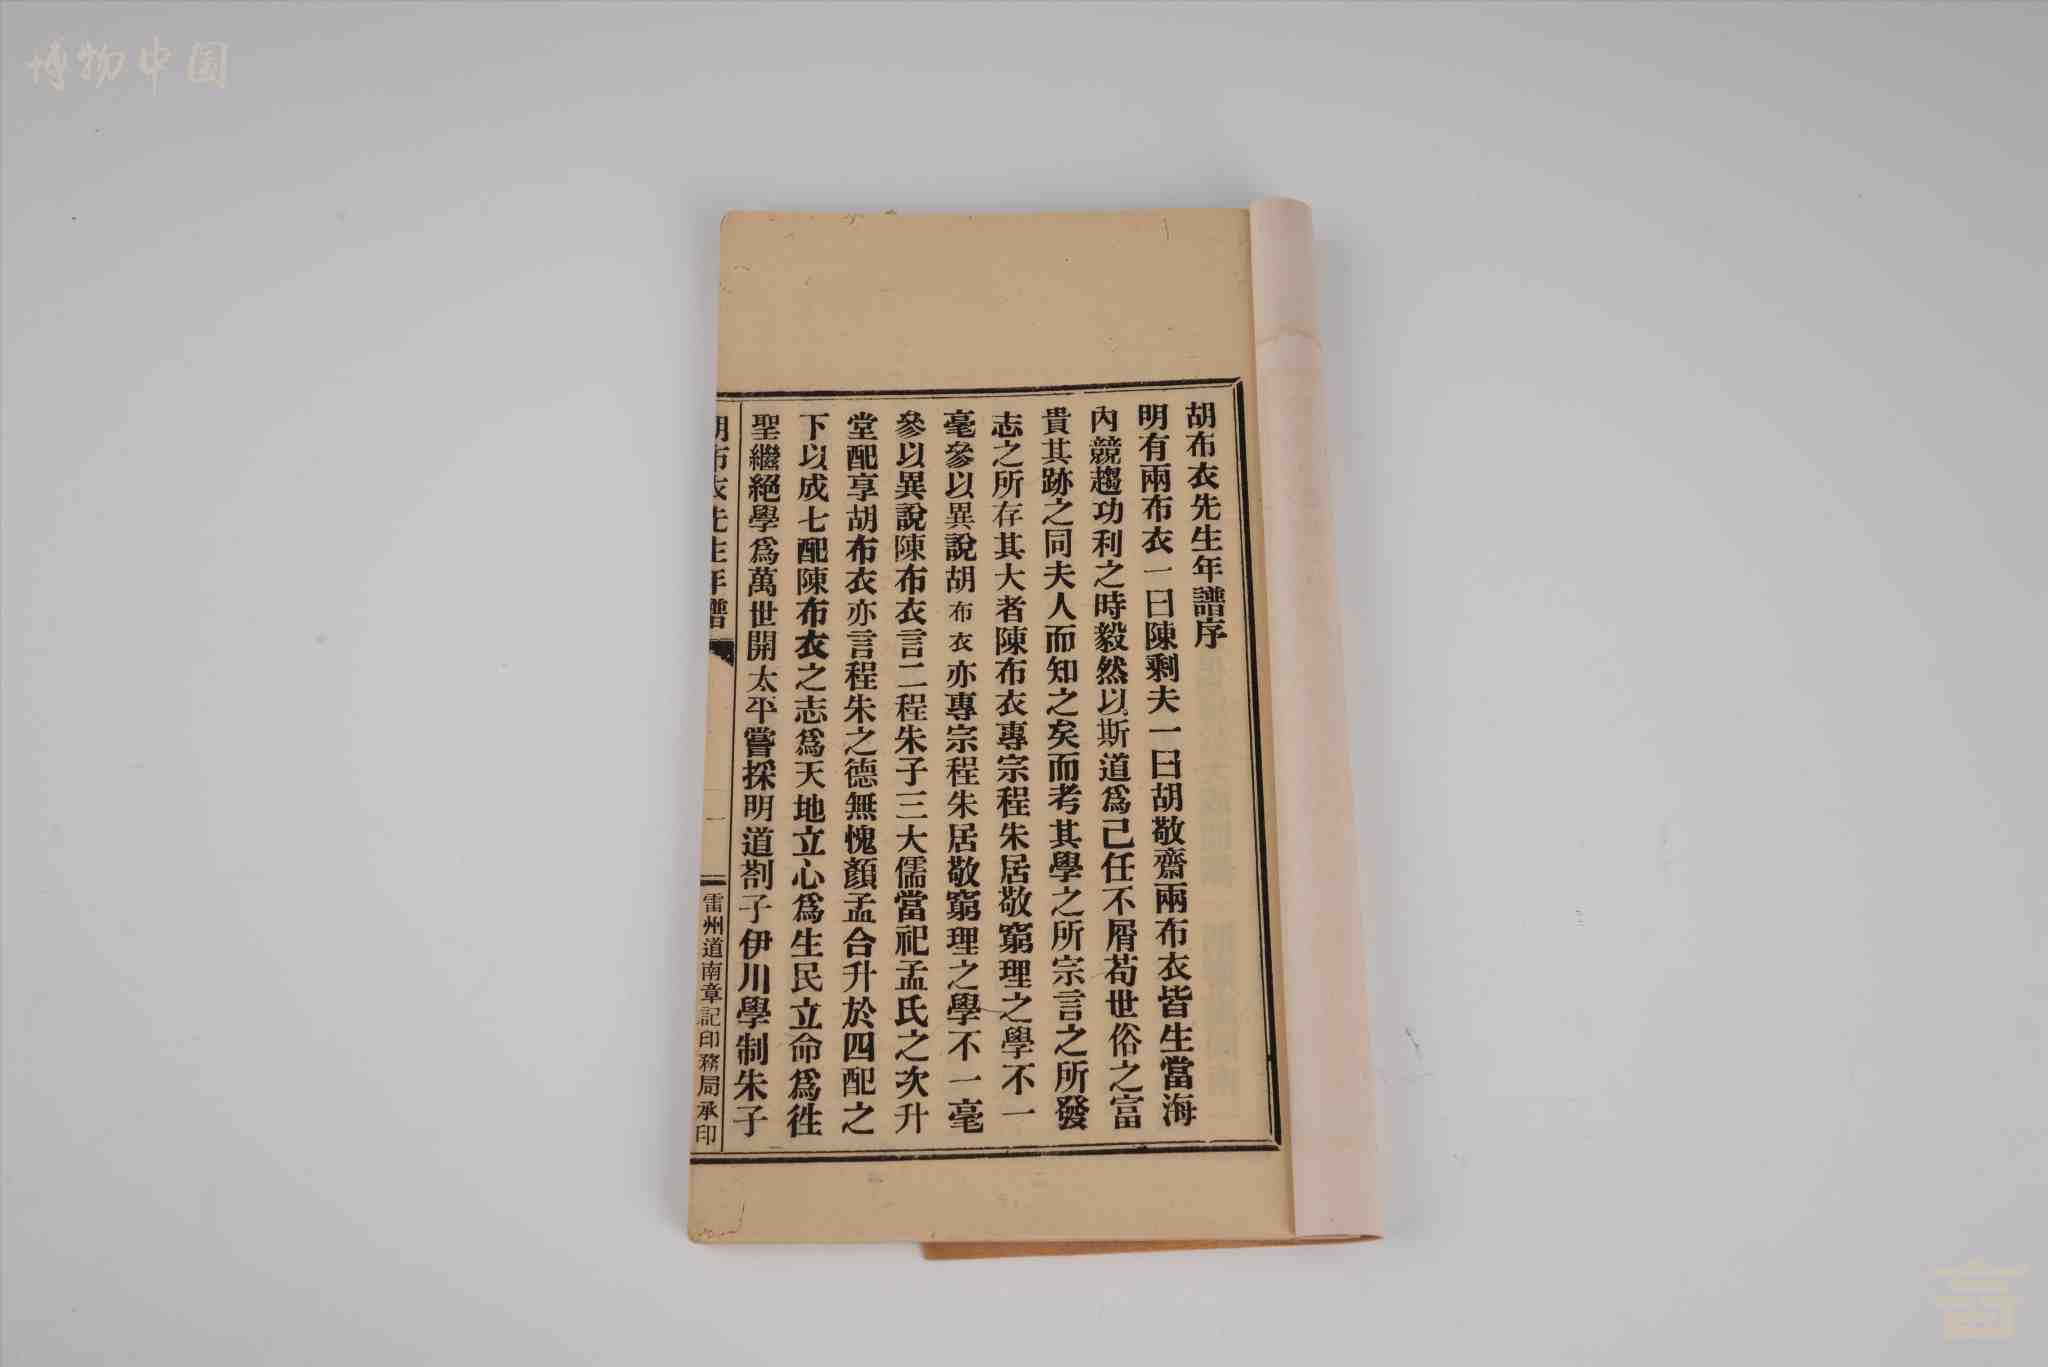 博物中国
胡布衣先生年譜序
明有兩布衣一曰陳剩夫一曰胡敬齋兩布衣皆生當海
內競趨功利之時毅然以斯道爲己任不屑苟世俗之富
貴其跡之同夫人而知之矣而考其學之所宗言之所發
志之所存其大者陳布衣專宗程朱居敬窮理之學不一
毫參以異說胡布衣亦專宗程朱居敬窮理之學不一毫
參以異說陳布衣言二程朱子三大儒當祀孟氏之次升
堂配享胡布衣亦言程朱之德無愧顏孟合升於四配之
下以成七配陳布衣之志爲天地立心爲生民立命爲徃
聖繼絕學爲萬世開太平嘗採明道劄子伊川學制朱子
胡布衣先生年譜
一
雷州道南章記印務局承印